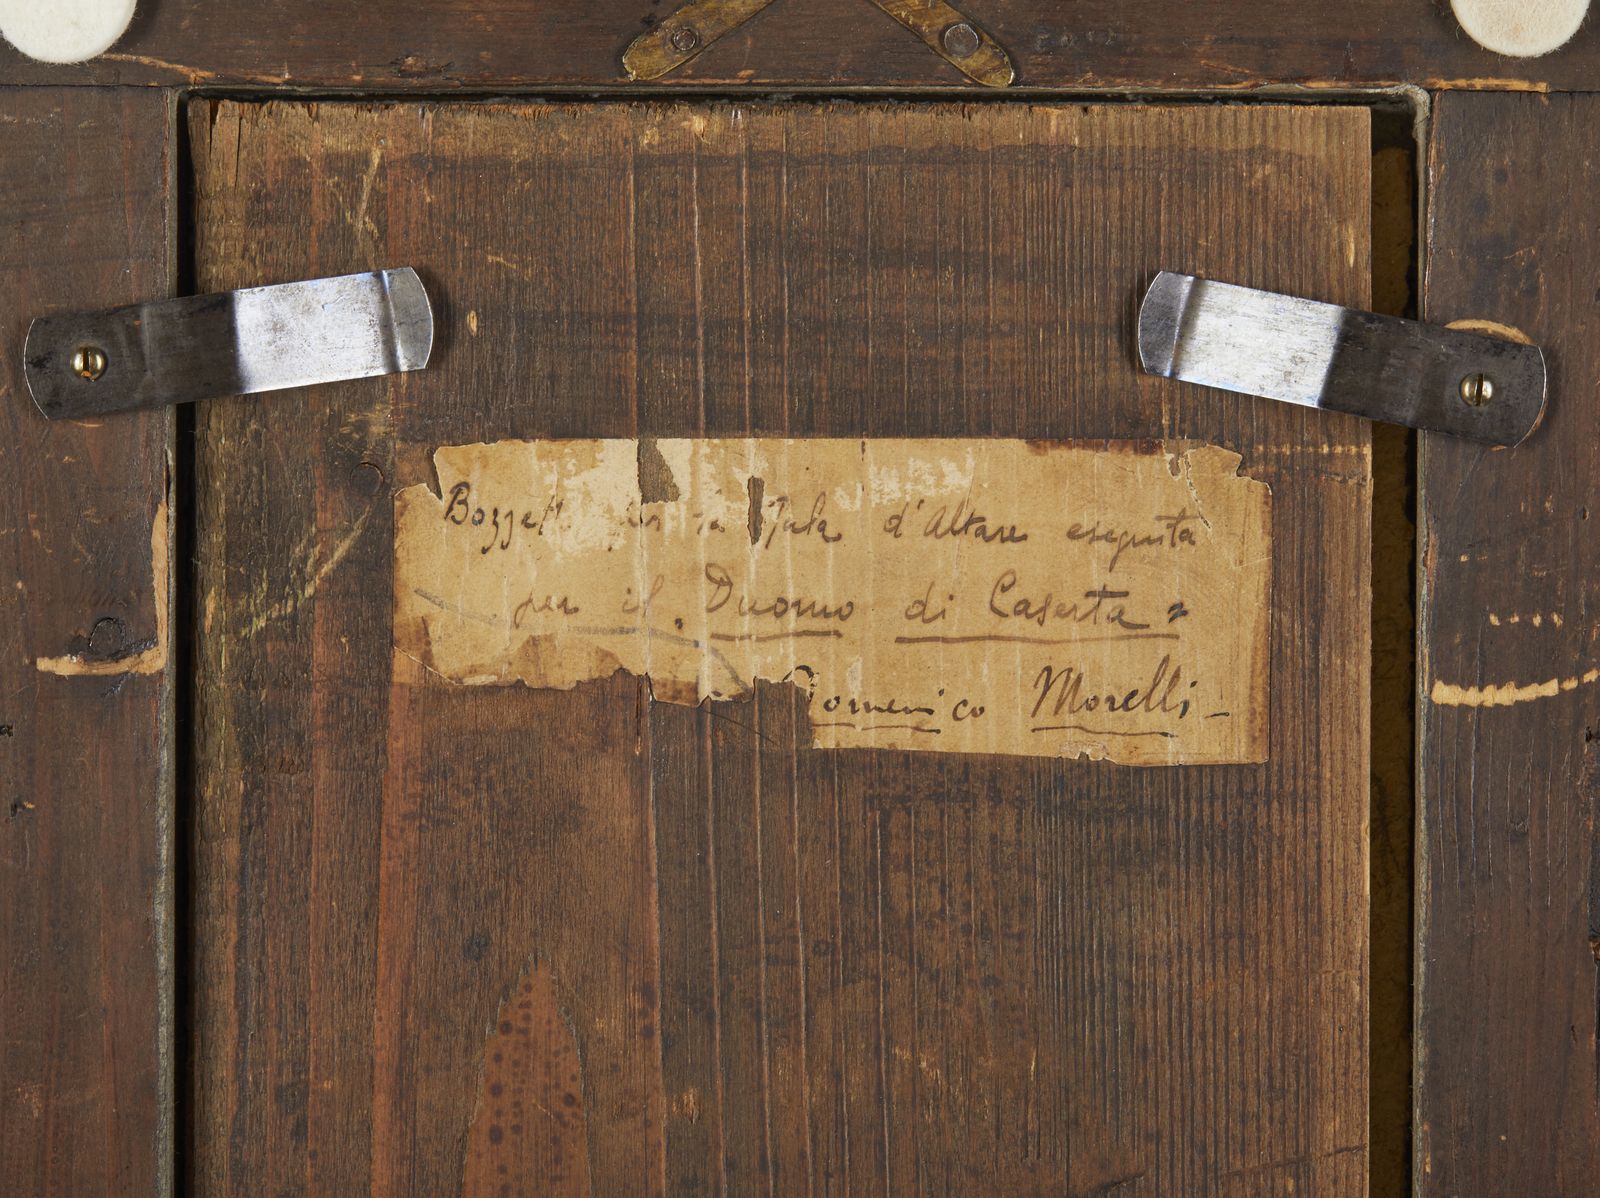 Bozzetto per la Pala d'Altare eseguita
per il Duomo di Caserta =
Domenico Morelli -